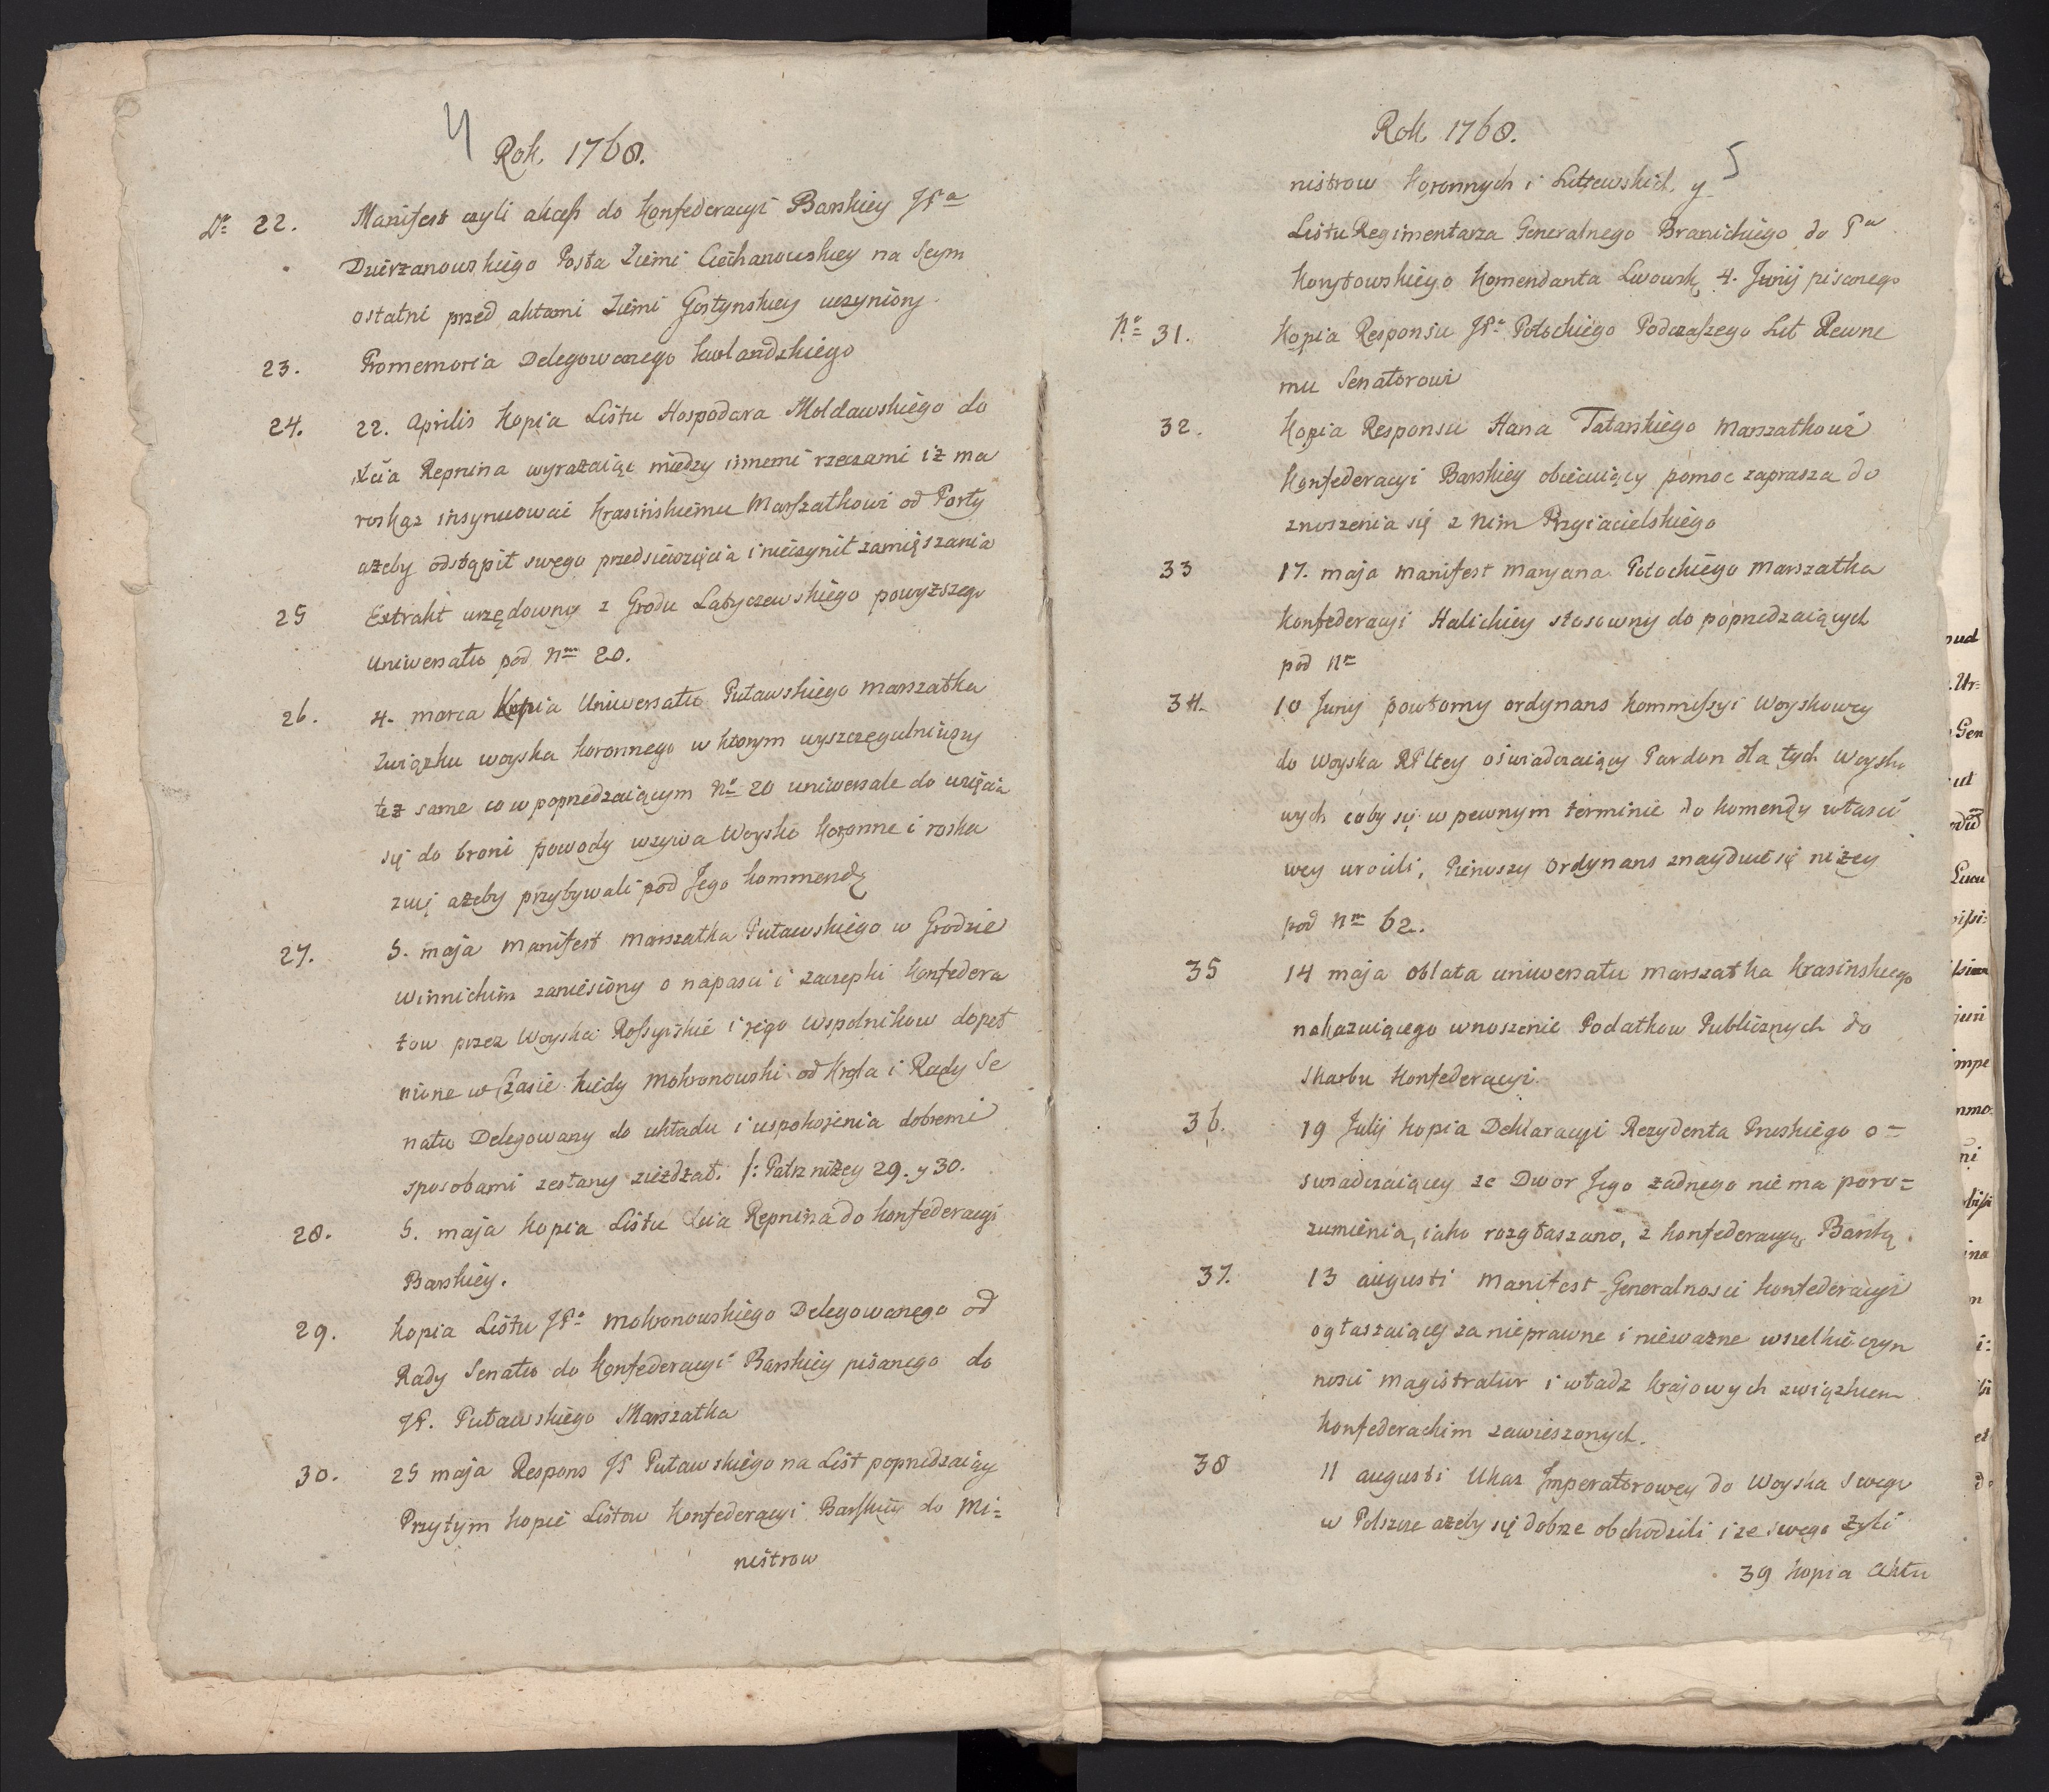 4
Rok 1768.
Nr 22. Manifest czyli akceß do Konfederacyi Barskiey JPa
Dzierzanowskiego Posła Ziemi Ciechanowskiey na Seym
ostatni przed aktami Ziemi Gostynskiey uczyniony
23. Promemoria Delegowanego Kurlandzkiego
24. 22. Aprilis Kopia Listu Hospodara Moldawskiego do
Xcia Repnina wyrażaiąc między innemi rzeczami iż ma
roskaz insynuować Krasińskiemu Marszałkowi od Porty
ażeby odstąpił swego przedsięwzięcia i nieczynił zamięszania
25 Extrakt urzędowny z Grodu Latyczewskiego powyższego
Uniwersału pod Nrm 20.
26. 4. marca Kopia Uniwersału Puławskiego marszałka
Związku woyska koronnego w ktorym wyszczegulniwszy
też same co w poprzedzaiącym Nro 20 uniwersale do wzięcia
się do broni powody wzywa Woysko koronne i roska
zuię ażeby przybywali pod Jego kommendę
27. 5. maja Manifest marszałka Puławskiego w Grodzie
Winnickim zaniesiony o napasci i zaczepki Konfedera
tow przez Woyska Roßyiskie i jego wspolnikow dopeł
nione w Czasie kiedy Mokronowski od Krola i Rady Se
natu Delegowany do układu i uspokojenia dobremi
sposobami zesłany zieżdżał. /: Patrz niżey 29. y 30.
28. 5. maja Kopia Listu Xcia Repnina do Konfederacyi
Barskiey.
29. Kopia Listu JPa Mokronowskiego Delegowanego od
Rady Senatu do Konfederacyi Barskiey pisanego do
JP. Puławskiego Marszałka
30. 25 maja Respons JP Puławskiego na List poprzedzaiący
Przytym kopie Listow Konfederacyi Barskiey do Mi=
nistrow
Rok 1768.
5
nistrow Koronnych i Litewskich y
Listu Regimentarza Generalnego Branickiego do Pa
Korytowskiego Komendanta Lwowsk. 4. Junij pisanego
Nro 31. Kopia Responsu JPa Potockiego Podczaszego Lit Pewne
mu Senatorowi
32. Kopia Responsu Hana Tatarskiego Marszałkowi
Konfederacyi Barskiey obiecuiący pomoc zaprasza do
znoszenia się z nim Przyiacielskiego
33 17. maja Manifest Maryana Potockiego Marszałka
Konfederacyi Halickiey stosowny do poprzedzaiących
pod Nr
34. 10 Junij powtorny ordynans Kommißyi Woyskowey
do Woyska RPltey oświadczaiący Pardon dla tych Woysko
wych coby się w pewnym terminie do komendy właści
wey wrocili, Pierwszy Ordynans znayduie się niżey
pod Nrm 62.
35 14 maja Oblata uniwersału marszałka Krasinskiego
nakazuiącego wnoszenie Podatkow Publicznych do
Skarbu Konfederacyi.
36. 19 Julij Kopia Deklaracyi Rezydenta Pruskiego o=
swiadczaiącey ze Dwor Jego żadnego nie ma poro=
zumienia, iako rozgłaszano, z Konfederacyą Barską.
37. 13 augusti Manifest Generalnosci Konfederacyi
ogłaszaiącey za nieprawne i nieważne wszelkie czyn
nosci magistratur i władz krajowych związkiem
Konfederackim zawieszonych.
38 11 augusti Ukaz Imperatorowey do Woyska swego
w Polszcze ażeby się dobrze obchodzili i ze swego żyli
39 Kopia Aktu